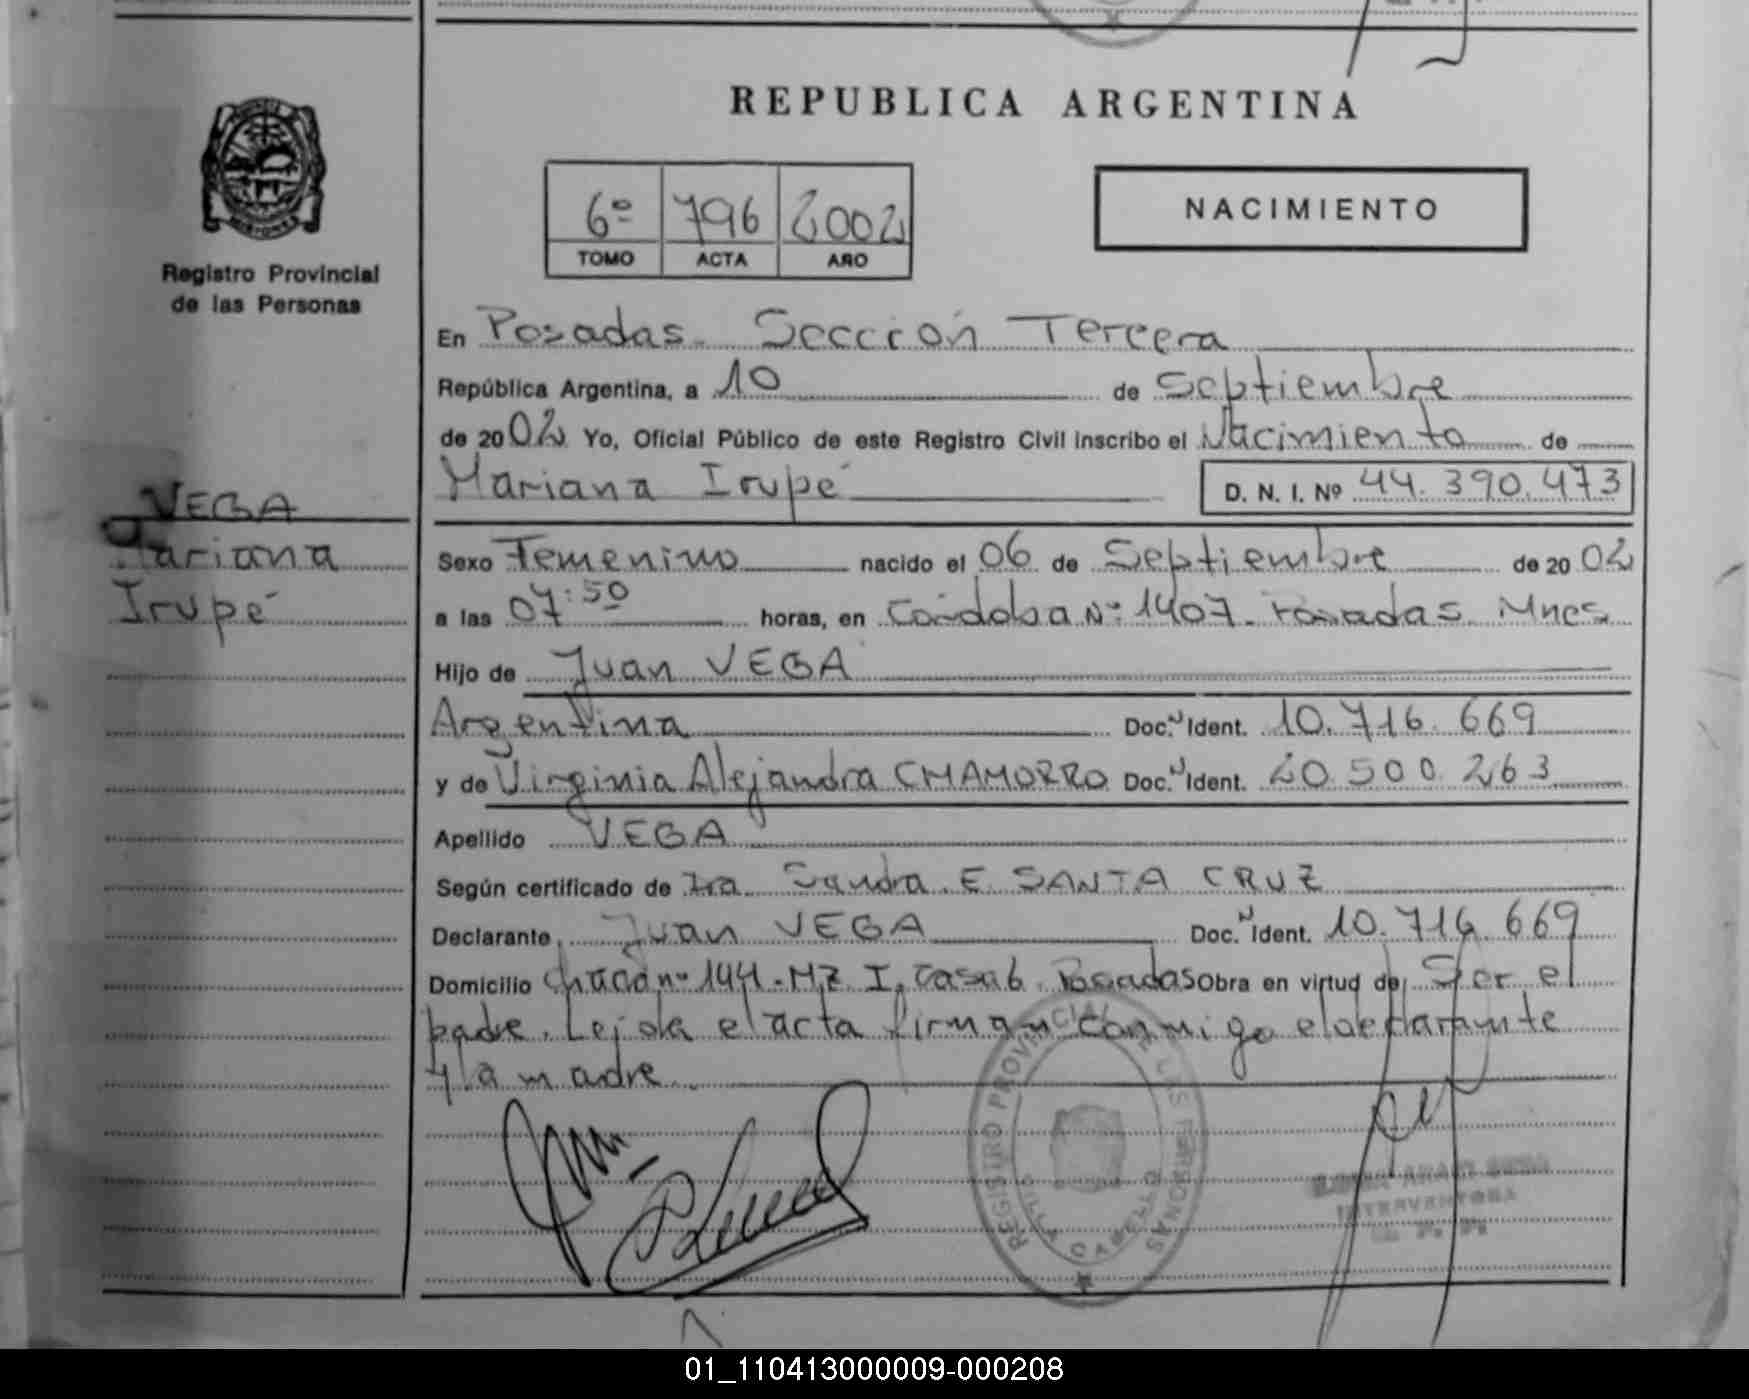 REPUBLICA ARGENTINA
6º 796 2002
TOMO ACTA AÑO
NACIMIENTO
Registro Provincial
de las Personas
VEGA
Mariana
Irupé
En Posadas. Sección Tercera
República Argentina, a 10 de Septiembre
de 2002 Yo, Oficial Público de este Registro Civil inscribo el Nacimiento de
Mariana Irupé D. N. I. Nº 44.390.473
Sexo Femenino nacido el 06 de Septiembre de 2002
a las 07:50 horas, en Córdoba Nº 1407. Posadas. Mnes
Hijo de Juan VEGA
Argentina Doc. Ident. 10.716.669
y de Virginia Alejandra CHAMORRO Doc. Ident. 20.500.263
Apellido VEGA
Según certificado de Dra. Sandra E. SANTA CRUZ
Declarante Juan VEGA Doc. Ident. 10.716.669
Domicilio MZ I, Casa 6. Posadas Obra en virtud de Ser el
padre. Leida el acta firman conmigo el declarante
y la madre.
REGISTRO PROVINCIAL DE LAS PERSONAS
INTERVENTORA
01_110413000009-000208